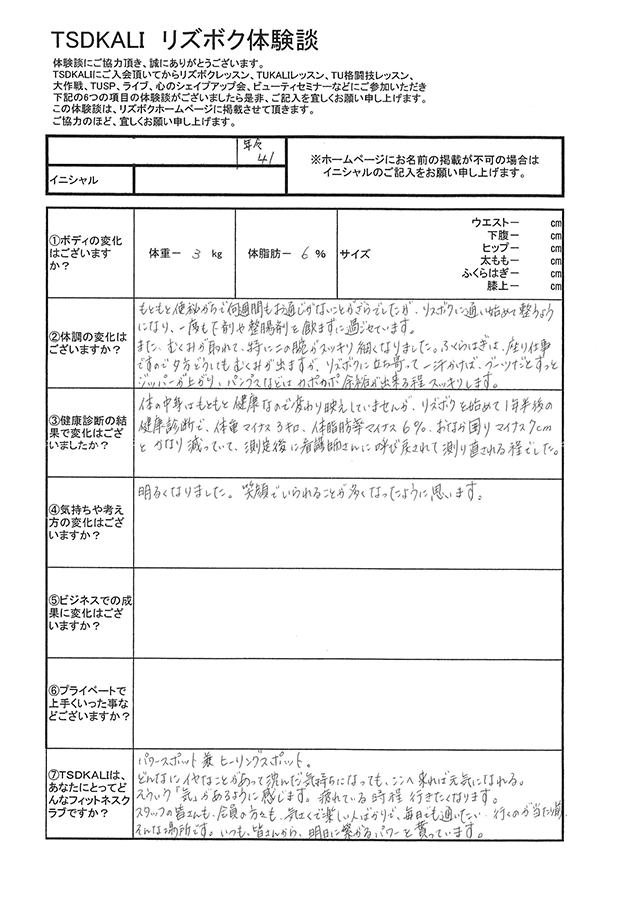 TSDKALI リズボク体験談
体験談にご協力頂き、誠にありがとうございます。
TSDKALIにご入会頂いてからリズボクレッスン、TUKALIレッスン、TU格闘技レッスン、
大作戦、TUSP、ライブ、心のシェイプアップ会、ビューティセミナーなどにご参加いただき
下記の6つの項目の体験談がございましたら是非、ご記入を宜しくお願い申し上げます。
この体験談は、リズボクホームページに掲載させて頂きます。
ご協力のほど、宜しくお願い申し上げます。
年令
41
イニシャル
※ホームページにお名前の掲載が不可の場合は
イニシャルのご記入をお願い申し上げます。
①ボディの変化
はございます
か？
体重ー 3 kg
体脂肪ー 6 %
サイズ
ウエストー cm
下腹ー cm
ヒップー cm
太ももー cm
ふくらはぎー cm
膝上ー cm
②体調の変化は
ございますか？
もともと便秘がちで何週間もお通じがないことがざらでしたが、リズボクに通い始めて整うよう
になり、一度も下剤や整腸剤を飲まずに過ごせています。
また、むくみが取れて、特に二の腕がスッキリ細くなりました。ふくらはぎは、座り仕事
ですので夕方どうしてもむくみが出ますが、リズボクに立ち寄って一汗かけば、ブーツだとずっと
ジッパーが上がり、パンプスなどはカポカポ余裕が出来る程スッキリします。
③健康診断の結
果で変化はござ
いましたか？
体の中身はもともと健康なので変わり映えしていませんが、リズボクを始めて1年半後の
健康診断で、体重マイナス3キロ、体脂肪等マイナス6%、おなか周りマイナス7cm
とかなり減っていて、測定後に看護師さんに呼び戻されて測り直される程でした。
④気持ちや考え
方の変化はござ
いますか？
明るくなりました。笑顔でいられることが多くなったように思います。
⑤ビジネスでの成
果に変化はござ
いますか？
⑥プライベートで
上手くいった事な
どございますか？
⑦TSDKALIは、
あなたにとってど
んなフィットネスク
ラブですか？
パワースポット兼ヒーリングスポット。
どんなにイヤなことがあって沈んだ気持ちになっても、ここへ来れば元気になれる。
そういう「気」があるように感じます。疲れている時程行きたくなります。
スタッフの皆さんも、会員の方々も、気さくで楽しい人ばかりで、毎日でも通いたい、行くのが当たり前、
そんな場所です。いつも、皆さんから、明日に繋がるパワーを貰っています。